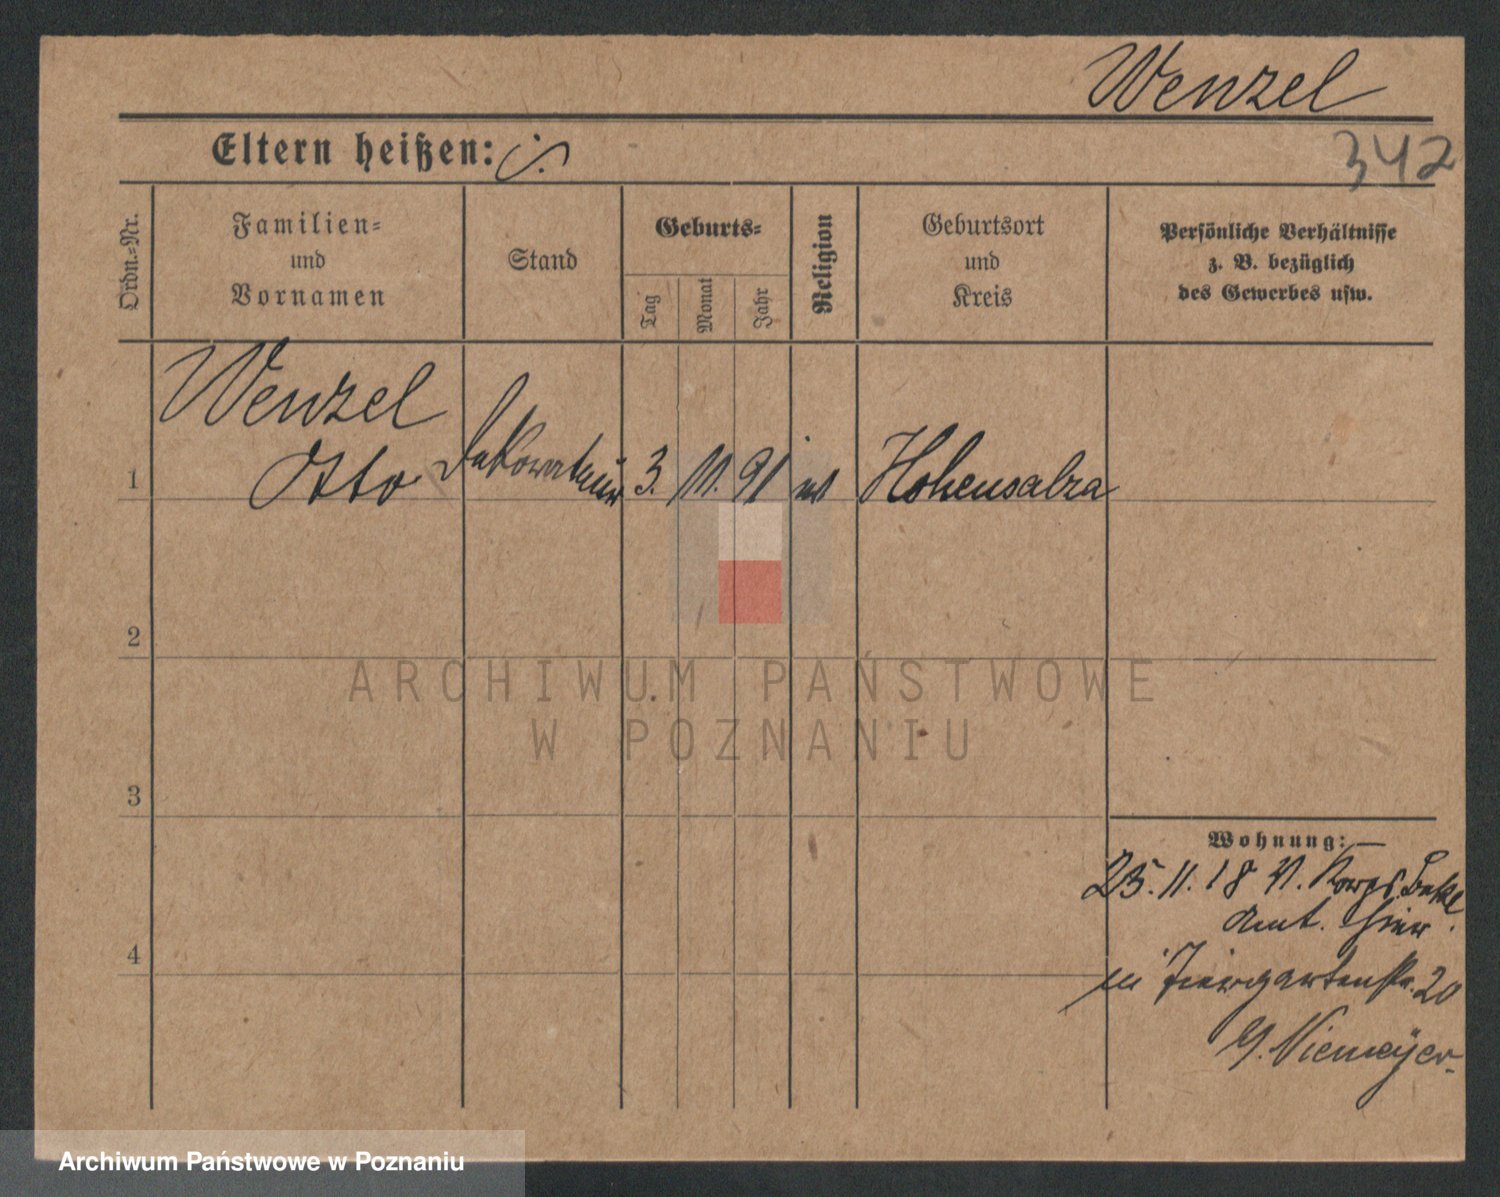 Wenzel
342
Eltern heißen:
Ordn.=Nr.
Familien=
und
Vornamen
Stand
Geburts=
Tag
Monat
Jahr
Religion
Geburtsort
und
Kreis
Persönliche Verhältnisse
z. B. bezüglich
des Gewerbes usw.
Wenzel
1 Otto Dekorateur 3. 11. 91 Hohensalza
2
3
4
Wohnung:
25. 11. 18 v. Korps Bekl
Amt. hier.
Tiergartenstr. 20
Niemeyer
ARCHIWUM PAŃSTWOWE
W POZNANIU
Archiwum Państwowe w Poznaniu